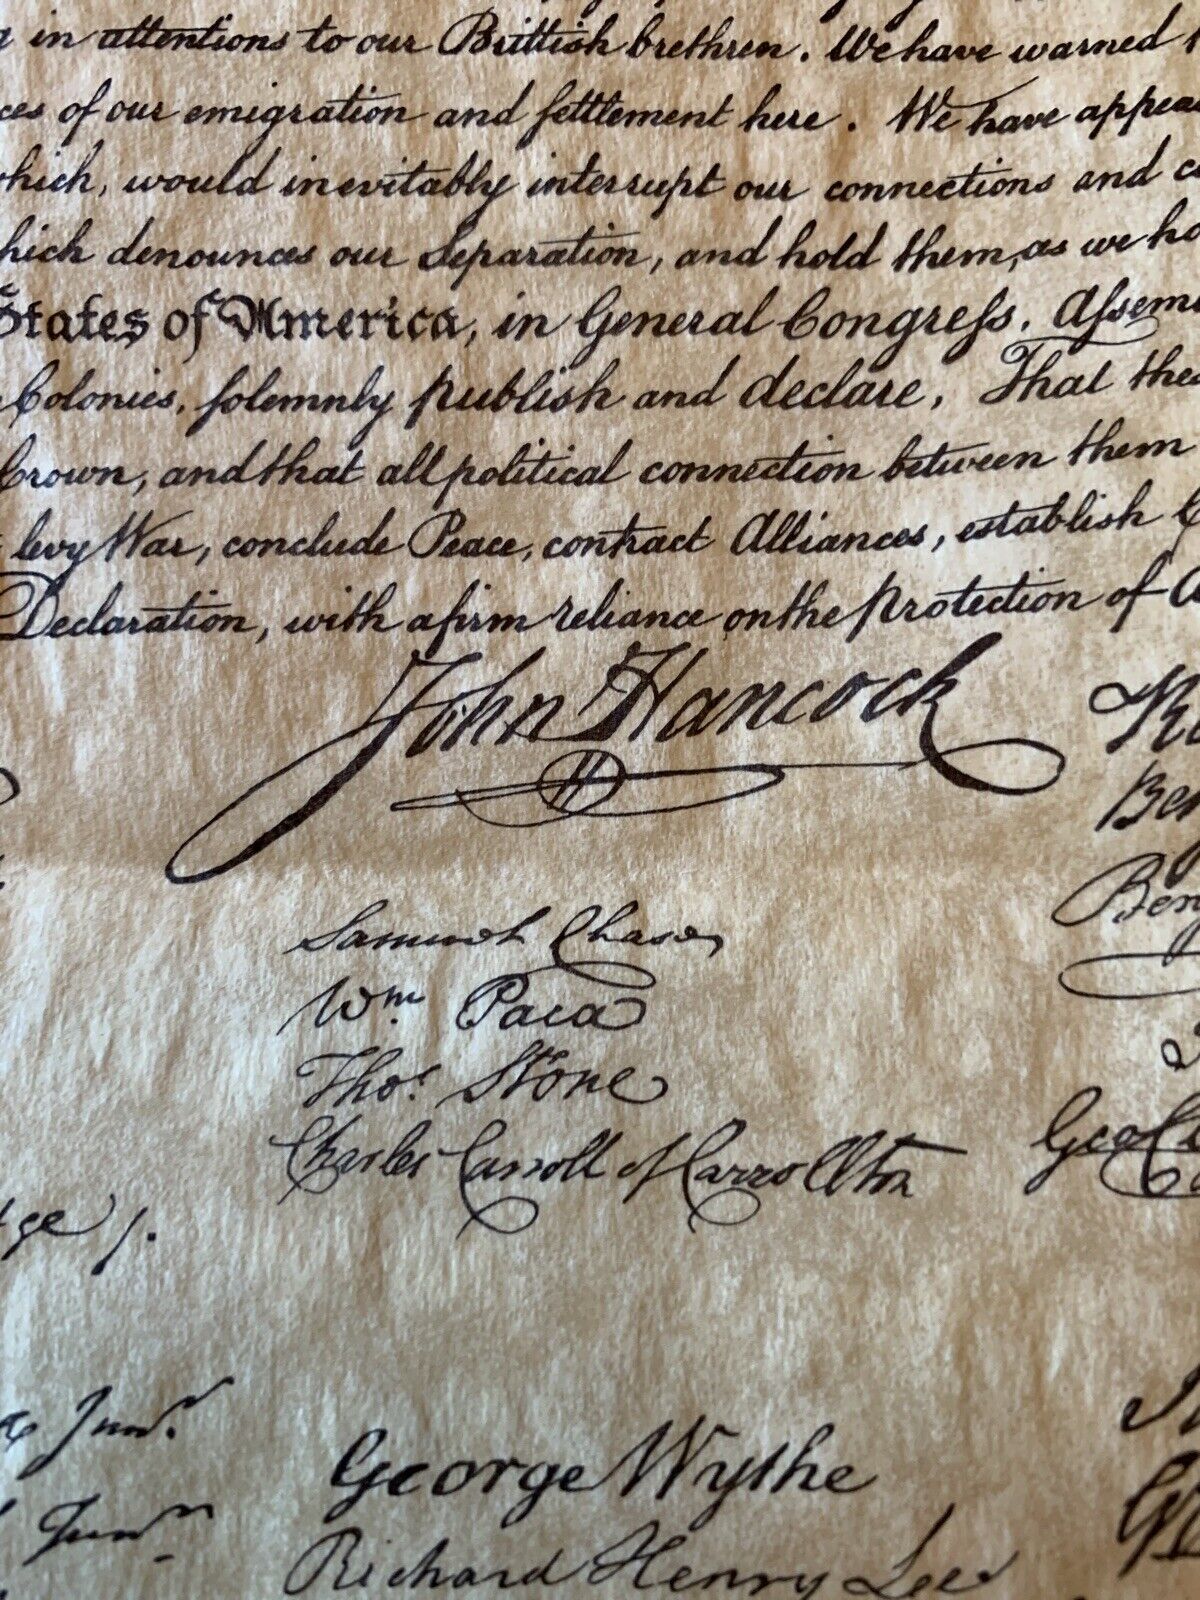 in attentions to our Brittish brethren. We have warned
of our emigration and settlement here. We have
would inevitably interrupt our connections and
denounces our Separation, and hold them, as we
States of America, in General Congress,
Colonies, solemnly publish and declare, That
Crown, and that all political connection between them
levy War, conclude Peace, contract Alliances, establish
Declaration, with a firm reliance on the protection of
John Hancock
Samuel Chase
Wm. Paca
Thos. Stone
Charles Carroll of Carrollton
Junr.
George Wythe
Junr.
Richard Henry Lee